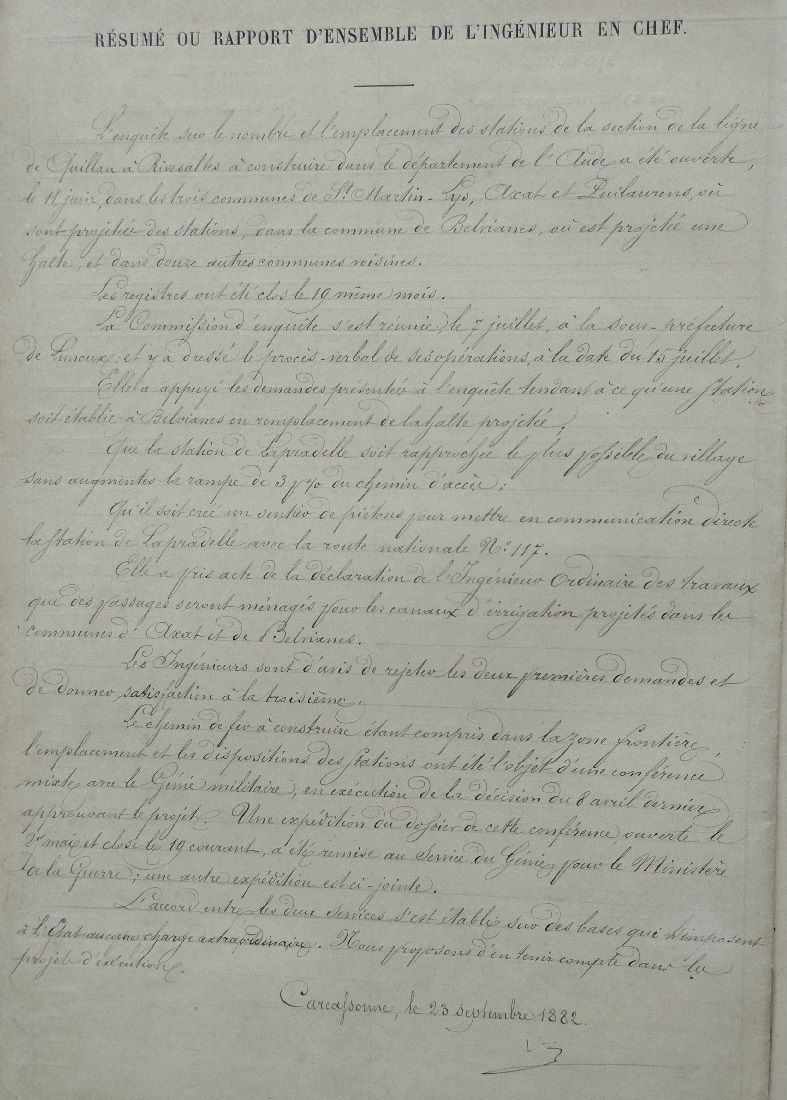 RÉSUMÉ OU RAPPORT D'ENSEMBLE DE L'INGÉNIEUR EN CHEF.
L'enquête sur le nombre et l'emplacement des stations de la section de la ligne
de Quillan à Rivesaltes à construire dans le département de l'Aude a été ouverte,
le 11 juin, dans les trois communes de St. Martin-Lys, Axat et Puilaurens, où
sont projetées des stations, dans la commune de Belvianes, où est projetée une
halte, et dans douze autres communes voisines.
Les registres ont été clos le 19 même mois.
La Commission d'enquête s'est réunie, le 7 juillet, à la sous-préfecture
de Limoux, et y a dressé le procès-verbal de ses opérations, à la date du 15 juillet.
Elle a appuyé les demandes présentées à l'enquête tendant à ce qu'une station
soit établie à Belvianes en remplacement de la halte projetée;
Que la station de Lapradelle soit rapprochée le plus possible du village
sans augmenter la rampe de 3 p % du chemin d'accès;
Qu'il soit créé un sentier de piétons pour mettre en communication directe
la station de Lapradelle avec la route nationale No. 117.
Elle a pris acte de la déclaration de l'Ingénieur Ordinaire des travaux
que des passages seront ménagés pour les canaux d'irrigation projetés dans les
communes d'Axat et de Belvianes.
Les Ingénieurs sont d'avis de rejeter les deux premières demandes et
de donner satisfaction à la troisième.
Le chemin de fer à construire étant compris dans la zone frontière,
l'emplacement et les dispositions des stations ont été l'objet d'une conférence
mixte avec le Génie militaire, en exécution de la décision du 8 avril dernier
approuvant le projet. Une expédition du dossier de cette conférence, ouverte le
mai et close le 19 courant, a été remise au Service du Génie pour le Ministère
de la Guerre; une autre expédition est ci-jointe.
L'accord entre les deux services s'est établi sur des bases qui n'imposent
à l'Etat aucune charge extraordinaire. Nous proposons d'en tenir compte dans les
projets d'exécution.
Carcassonne, le 23 septembre 1882.